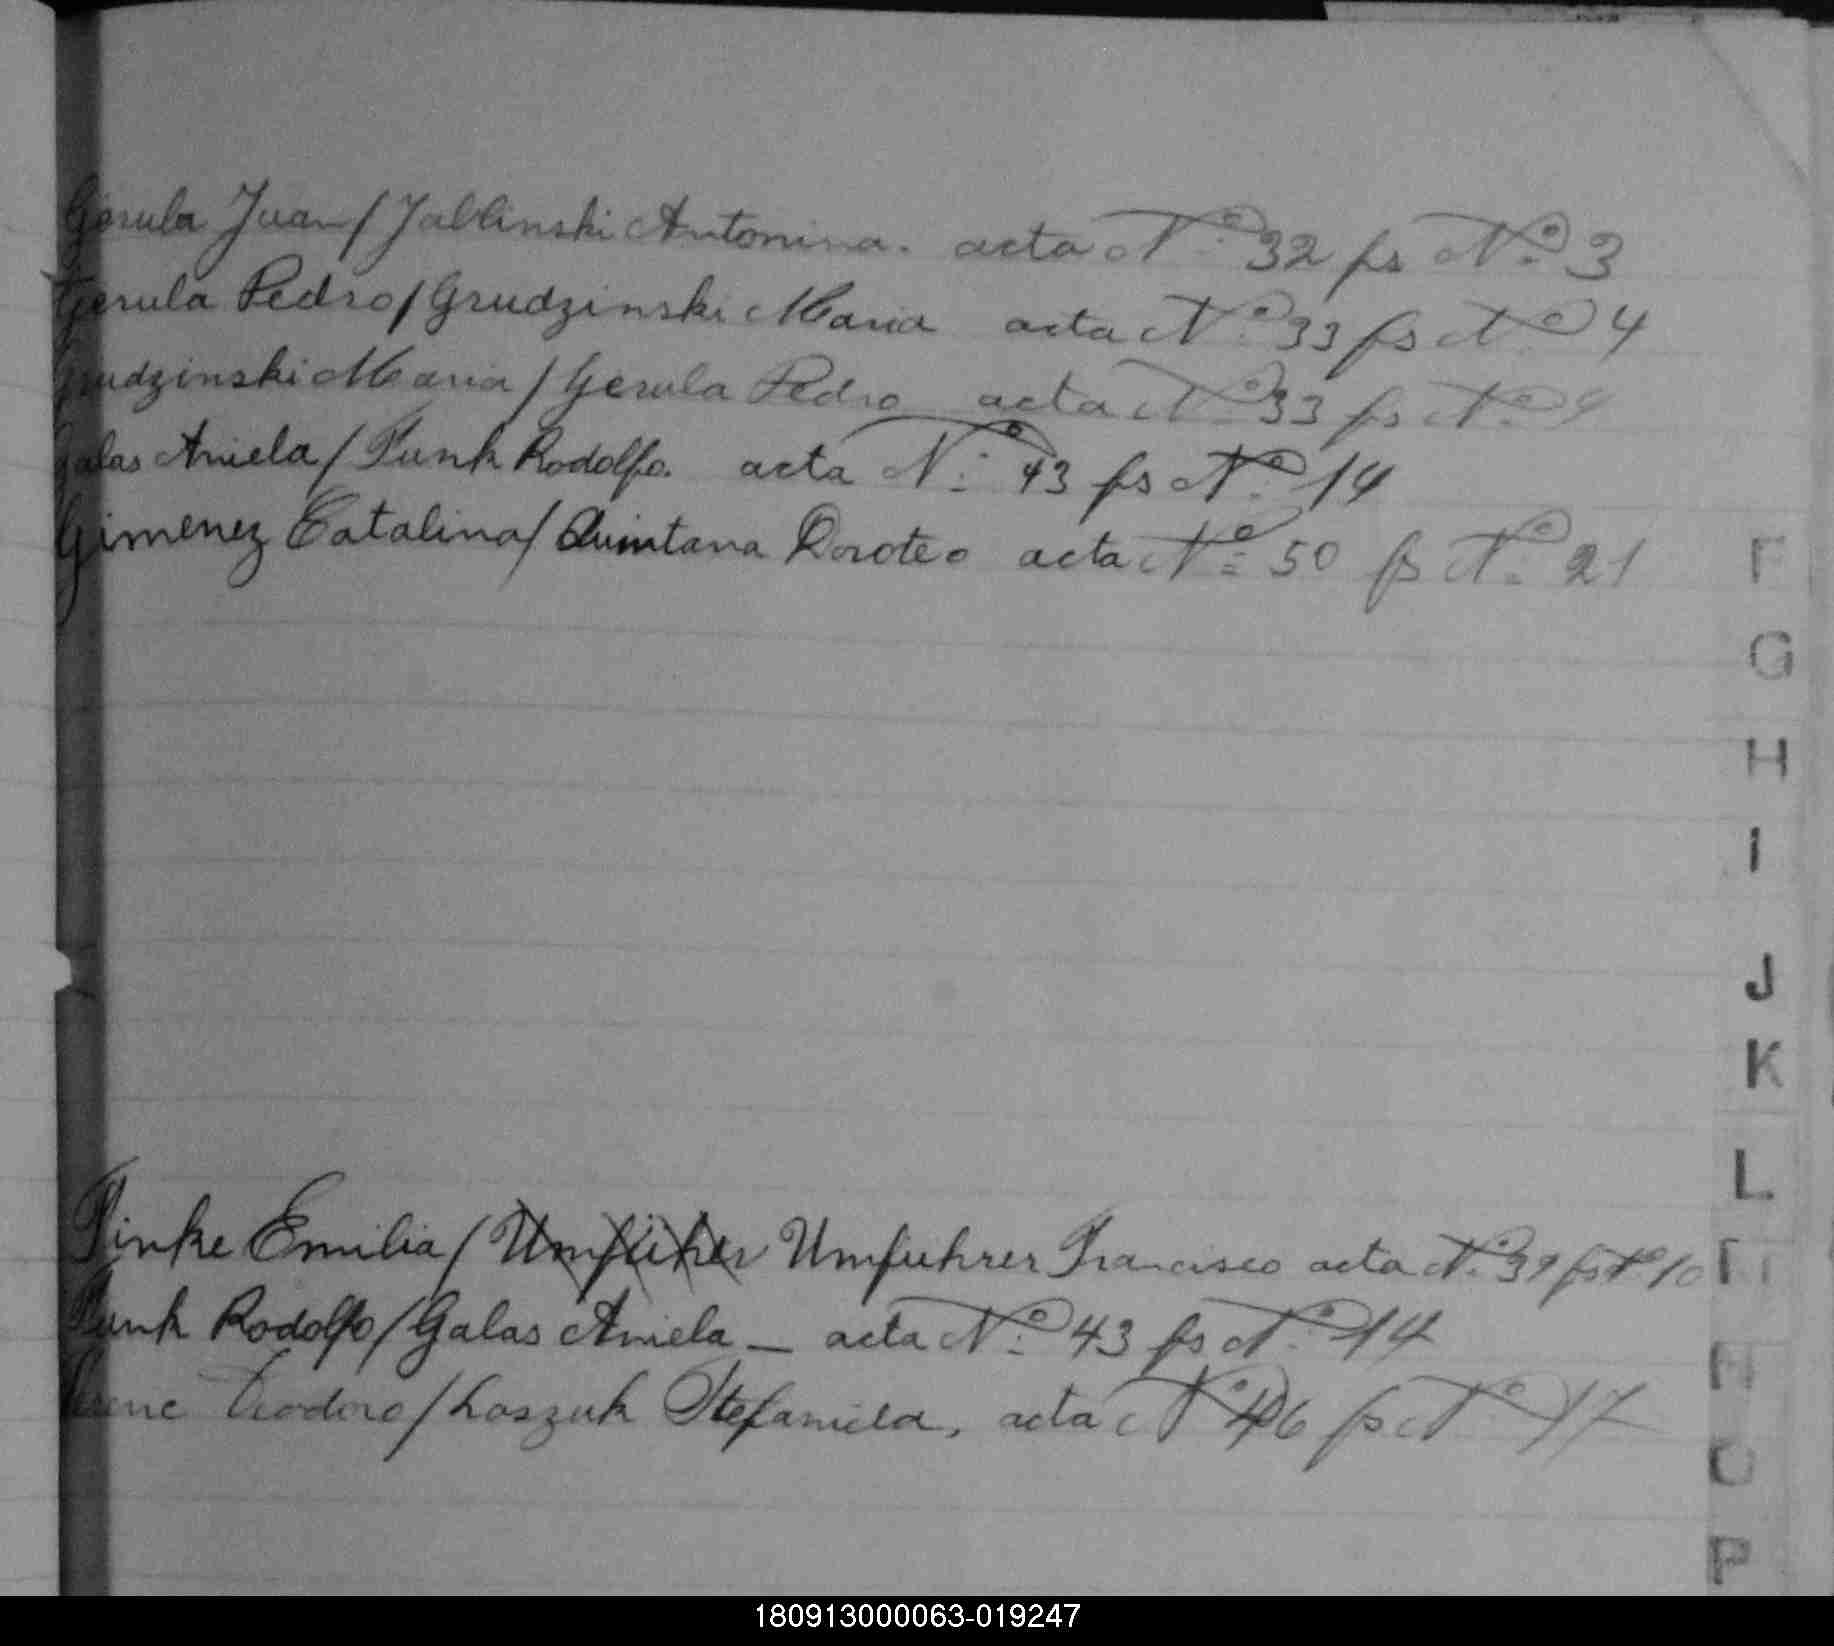 Gerula Juan / Jablinski Antonina. acta Nº 32 fs Nº 3
Gerula Pedro / Grudzinski Maria acta Nº 33 fs Nº 4
Grudzinski Maria / Gerula Pedro acta Nº 33 fs Nº 4
Galas Aniela / Funk Rodolfo. acta Nº 43 fs Nº 14
Gimenez Catalina / Quintana Doroteo acta Nº 50 fs Nº 21
F
G
H
I
J
K
L
Finke Emilia / Umfuhrer Francisco acta Nº 39 fs Nº 10
Funk Rodolfo / Galas Aniela — acta Nº 43 fs Nº 14
Teodoro / Loszuk Stefaniela, acta Nº 46 fs Nº 17
O
P
180913000063-019247